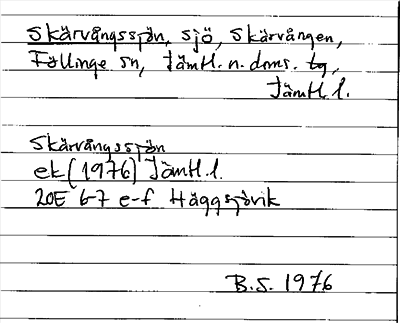 Skärvångssjön, sjö, Skärvången,
Föllinge sn, Jämtl. n. doms. tg,
Jämtl. l.
Skärvångssjön
ek (1976) Jämtl. l.
20E 6-7 e-f Häggsjövik
B.S. 1976